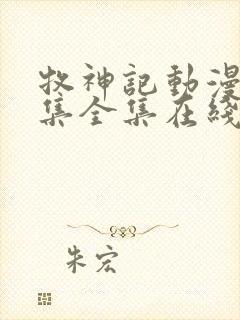 牧神記動漫
集全集在綫
朱宏